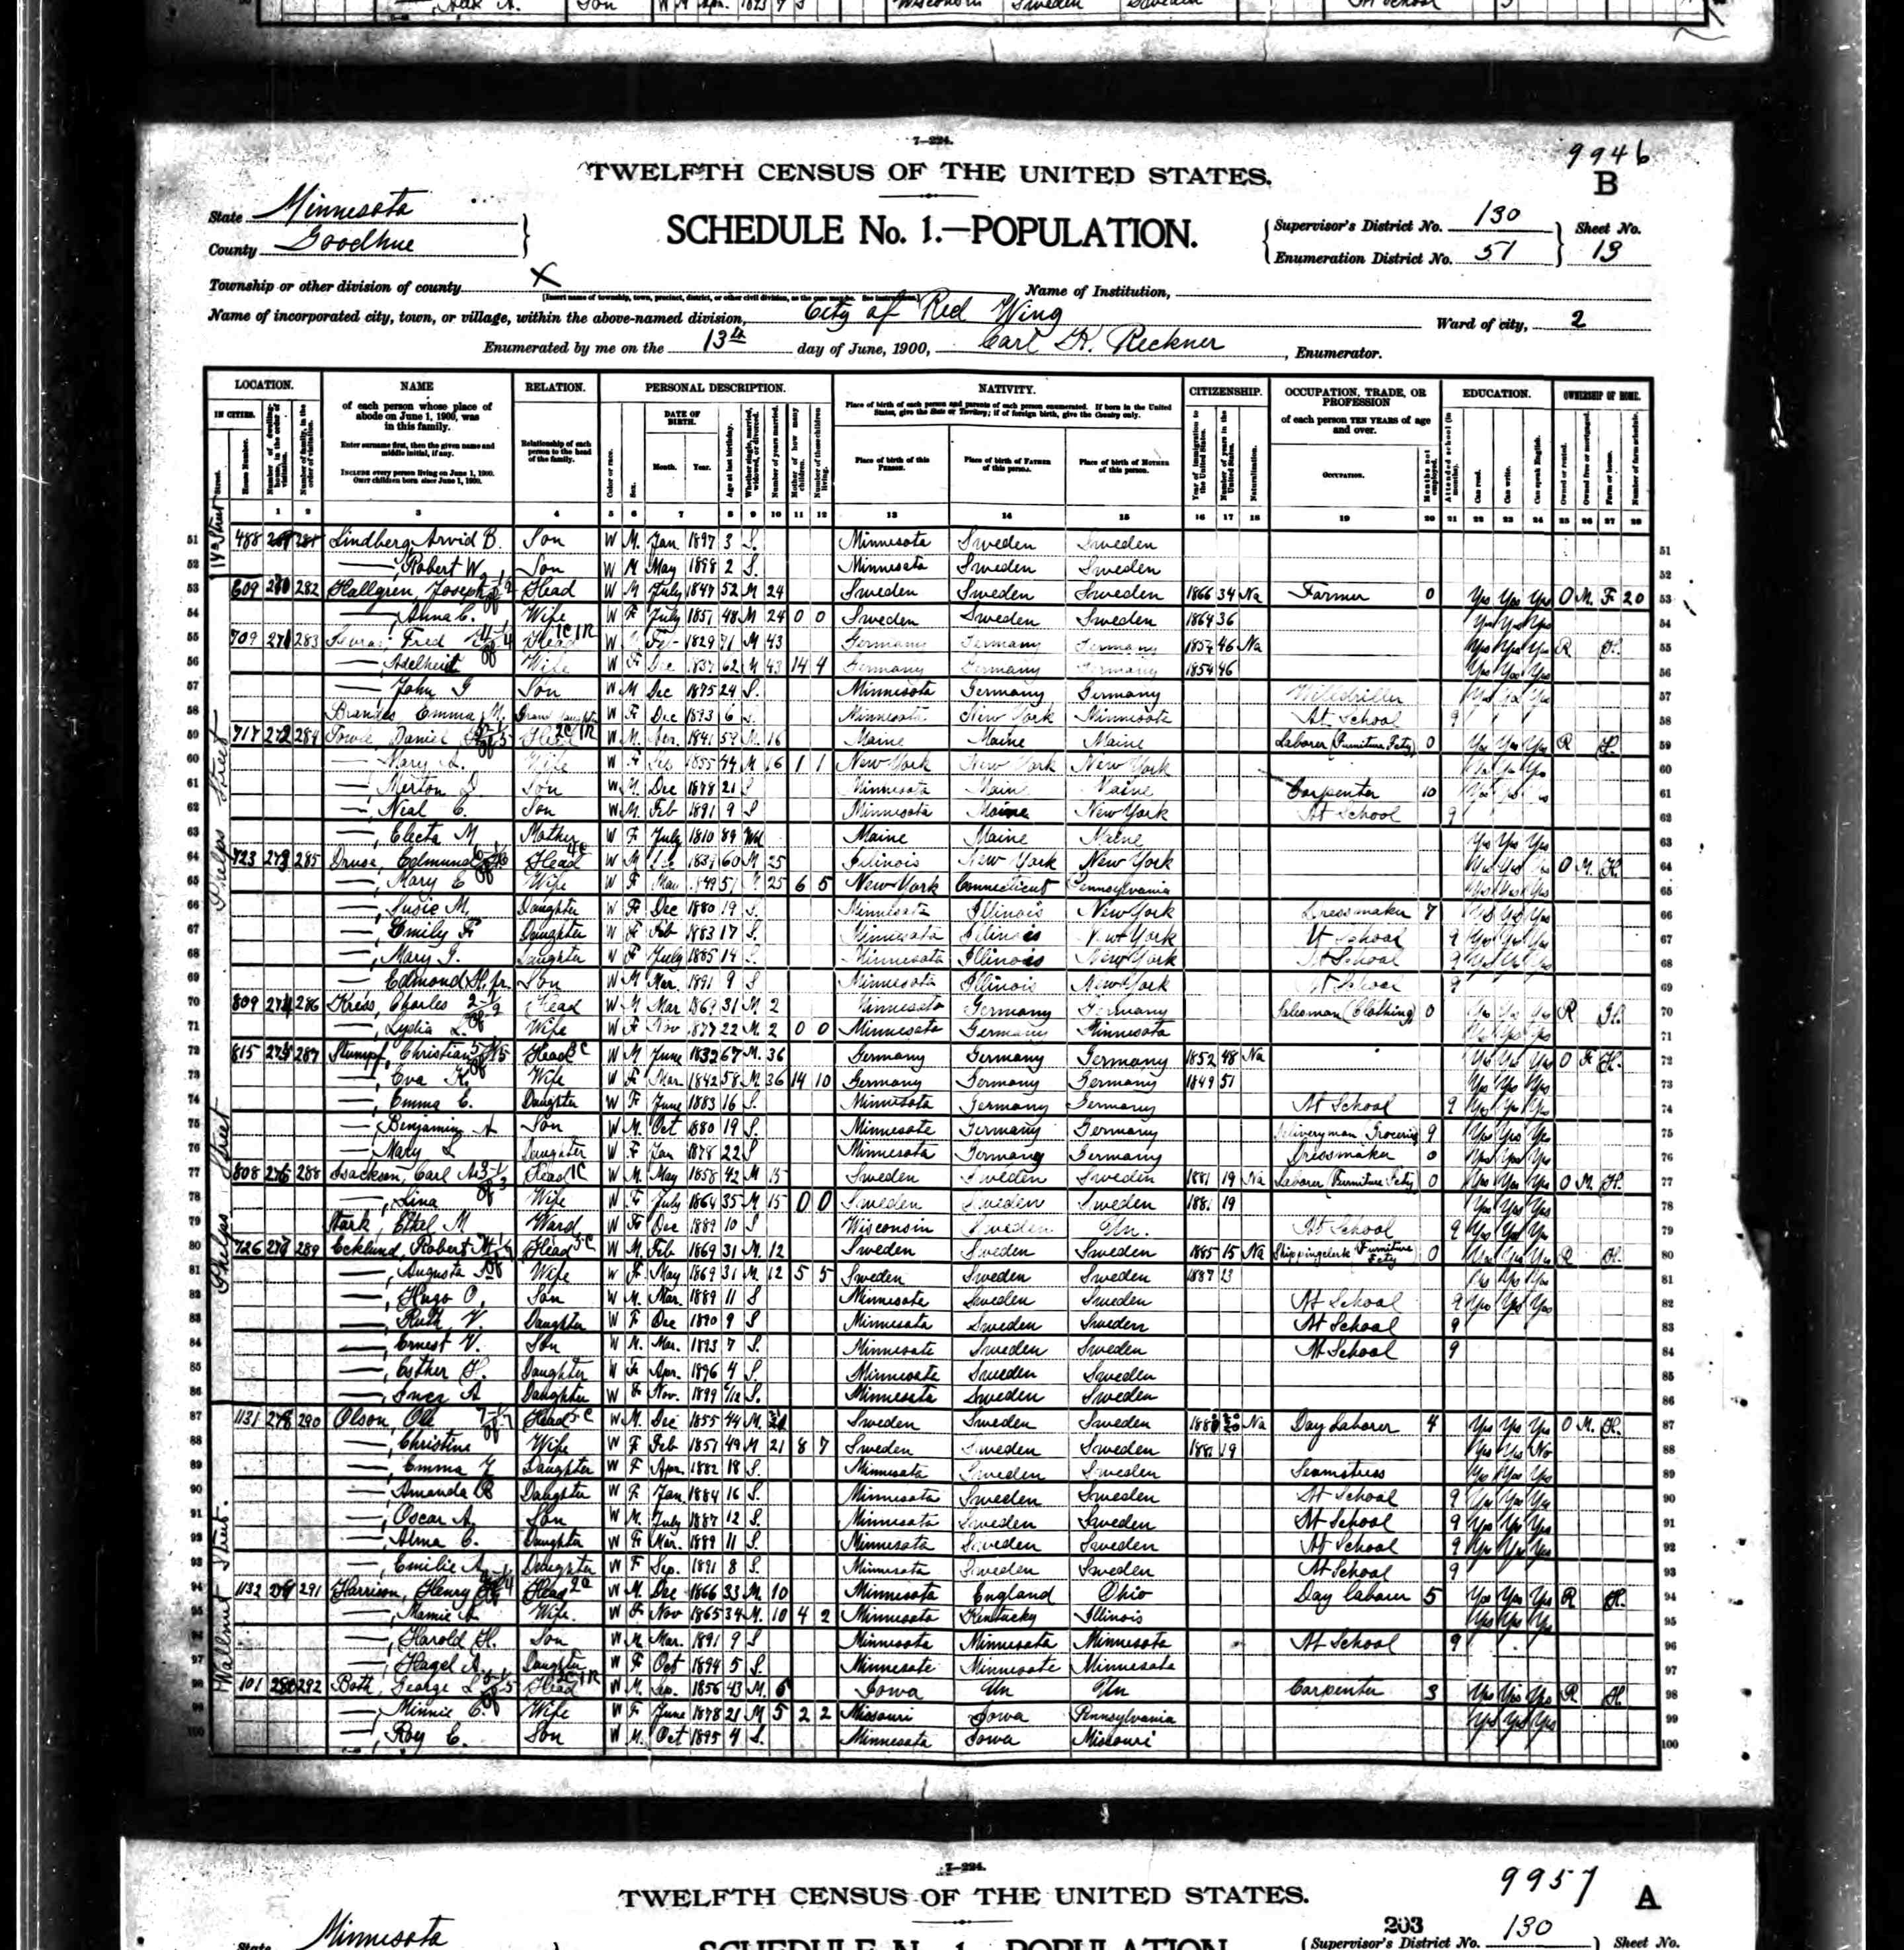 7-224.
9946
TWELFTH CENSUS OF THE UNITED STATES.
B
State Minnesota
County Goodhue
SCHEDULE No. 1.—POPULATION.
Supervisor's District No. 130
Enumeration District No. 51
Sheet No. 13
Township or other division of county X
[Insert name of township, town, precinct, district, or other civil division, as the case may be. See instructions.]
Name of Institution,
Name of incorporated city, town, or village, within the above-named division, City of Red Wing
Ward of city, 2
Enumerated by me on the 13th day of June, 1900, Carl K. Reckner, Enumerator.
LOCATION. NAME RELATION. PERSONAL DESCRIPTION. NATIVITY. CITIZENSHIP. OCCUPATION, TRADE, OR PROFESSION EDUCATION. OWNERSHIP OF HOME.
IN CITIES. of each person whose place of abode on June 1, 1900, was in this family.
Enter surname first, then the given name and middle initial, if any.
INCLUDE every person living on June 1, 1900. OMIT children born since June 1, 1900.
Relationship of each person to the head of the family.
DATE OF BIRTH. Month. Year.
Place of birth of each person and parents of each person enumerated. If born in the United States, give the State or Territory; if of foreign birth, give the Country only.
Place of birth of this PERSON. Place of birth of FATHER of this person. Place of birth of MOTHER of this person.
of each person TEN YEARS of age and over.
OCCUPATION.
1 2 3 4 5 6 7 8 9 10 11 12 13 14 15 16 17 18 19 20 21 22 23 24 25 26 27 28
51 488 Lindberg, Arvid B. Son W M. Jan 1897 3 S. Minnesota Sweden Sweden 51
52 —, Robert W. Son W M May 1898 2 S. Minnesota Sweden Sweden 52
53 609 270 282 Hallgren, Joseph Head W M July 1847 52 M 24 Sweden Sweden Sweden 1866 34 Na Farmer 0 Yes Yes Yes O M. F 20 53
54 —, Anna C. Wife W F July 1851 48 M 24 0 0 Sweden Sweden Sweden 1864 36 Yes Yes Yes 54
55 709 271 283 Fred Head W 1829 71 M 43 Germany Germany Germany 1854 46 Na Yes Yes Yes R H. 55
56 —, Adelheit Wife W F Dec 1837 62 M 43 14 4 Germany Germany Germany 1854 46 Yes Yes Yes 56
57 —, John G Son W M Dec 1875 24 S. Minnesota Germany Germany Welldriller Yes Yes Yes 57
58 Brandes Emma M. Grand daughter W F Dec 1893 6 S. Minnesota New York Minnesota At School 9 58
59 717 272 284 Towle, Daniel Head W M. 1841 59 M 16 Maine Maine Maine Laborer (Furniture Fcty) 0 Yes Yes Yes R H. 59
60 —, Mary L. Wife W F Feb 1855 44 M 16 1 1 New York New York New York Yes Yes Yes 60
61 —, Merton D Son W M. Dec 1878 21 S Minnesota Maine Maine Carpenter 10 Yes Yes Yes 61
62 —, Neal C. Son W M. Feb 1891 9 S Minnesota Maine New York At School 9 62
63 —, Electa M Mother W F. July 1810 89 Wd Maine Maine Maine Yes Yes Yes 63
64 723 273 285 Druse, Edmund Head W M 1839 60 M 25 Illinois New York New York Yes Yes Yes O M. H. 64
65 —, Mary E Wife W F May 1849 51 M 25 6 5 New York Connecticut Pennsylvania Yes Yes Yes 65
66 —, Susie M. Daughter W F Dec 1880 19 S. Minnesota Illinois New York Dressmaker 7 Yes Yes Yes 66
67 —, Emily F Daughter W F Feb 1883 17 S. Minnesota Illinois New York At School 9 Yes Yes Yes 67
68 —, Mary G. Daughter W F July 1885 14 S. Minnesota Illinois New York At School 9 Yes Yes Yes 68
69 —, Edmond H. jr. Son W M Mar. 1891 9 S Minnesota Illinois New York At School 9 69
70 809 274 286 Kress, Charles Head W M Mar 1869 31 M 2 Minnesota Germany Germany Salesman (Clothing) 0 Yes Yes Yes R H. 70
71 —, Lydia L. Wife W F Nov 1877 22 M. 2 0 0 Minnesota Germany Minnesota Yes Yes Yes 71
72 815 275 287 Stumpf, Christian Head W M June 1832 67 M. 36 Germany Germany Germany 1852 48 Na Yes Yes Yes O F H. 72
73 —, Eva K. Wife W F Mar 1842 58 M 36 14 10 Germany Germany Germany 1849 51 Yes Yes Yes 73
74 —, Emma E. Daughter W F June 1883 16 S. Minnesota Germany Germany At School 9 Yes Yes Yes 74
75 —, Benjamin A Son W M. Oct 1880 19 S. Minnesota Germany Germany Deliveryman (Groceries) 9 Yes Yes Yes 75
76 —, Mary L Daughter W F Jan 1878 22 S Minnesota Germany Germany Dressmaker 0 Yes Yes Yes 76
77 808 276 288 Isackson, Carl A. Head W M. May 1858 42 M 15 Sweden Sweden Sweden 1881 19 Na Laborer (Furniture Fcty) 0 Yes Yes Yes O M. H. 77
78 —, Lina Wife W F. July 1864 35 M 15 0 0 Sweden Sweden Sweden 1881 19 Yes Yes Yes 78
79 Stark, Ethel M Ward W F Dec 1889 10 S. Wisconsin Sweden Un. At School 9 Yes Yes Yes 79
80 726 277 289 Ecklund, Robert Head W M. Feb 1869 31 M. 12 Sweden Sweden Sweden 1885 15 Na Shippingclerk Furniture Fcty 0 Yes Yes Yes R H. 80
81 —, Augusta Wife W F. May 1869 31 M. 12 5 5 Sweden Sweden Sweden 1887 13 Yes Yes Yes 81
82 —, Hugo O. Son W M. Mar. 1889 11 S Minnesota Sweden Sweden At School 9 Yes Yes Yes 82
83 —, Ruth V. Daughter W F Dec 1890 9 S Minnesota Sweden Sweden At School 9 83
84 —, Ernest V. Son W M. Mar. 1893 7 S. Minnesota Sweden Sweden At School 9 84
85 —, Esther Daughter W F Apr. 1896 4 S. Minnesota Sweden Sweden 85
86 —, Inez A Daughter W F Nov. 1899 S. Minnesota Sweden Sweden 86
87 1131 278 290 Olson, Ole Head W M. Dec 1855 44 M. 21 Sweden Sweden Sweden Na Day Laborer 4 Yes Yes Yes O M. H. 87
88 —, Christine Wife W F Feb 1851 49 M 21 8 7 Sweden Sweden Sweden 1881 19 Yes Yes No 88
89 —, Emma Daughter W F Apr. 1882 18 S. Minnesota Sweden Sweden Seamstress Yes Yes Yes 89
90 —, Amanda B Daughter W F. Jan. 1884 16 S. Minnesota Sweden Sweden At School 9 Yes Yes Yes 90
91 —, Oscar A. Son W M. July 1887 12 S. Minnesota Sweden Sweden At School 9 Yes Yes Yes 91
92 —, Alma C. Daughter W F Mar. 1889 11 S. Minnesota Sweden Sweden At School 9 Yes Yes Yes 92
93 —, Emilie A. Daughter W F Sep. 1891 8 S. Minnesota Sweden Sweden At School 9 93
94 1132 279 291 Harrison, Henry Head W M. Dec 1866 33 M. 10 Minnesota England Ohio Day laborer 5 Yes Yes Yes R H. 94
95 —, Mamie A. Wife. W F Nov 1865 34 M. 10 4 2 Minnesota Kentucky Illinois Yes Yes Yes 95
96 —, Harold H. Son W M. Mar. 1891 9 S Minnesota Minnesota Minnesota At School 9 96
97 —, Hazel A. Daughter W F Oct 1894 5 S. Minnesota Minnesota Minnesota 97
98 101 280 292 Both, George Head W M. Sep. 1856 43 M. 6 Iowa Un Un Carpenter 3 Yes Yes Yes R H. 98
99 —, Minnie C. Wife W F June 1878 21 M 5 2 2 Missouri Iowa Pennsylvania Yes Yes Yes 99
100 —, Roy E. Son W M. Oct 1895 4 S. Minnesota Iowa Missouri 100
Phelps Street
Phelps Street
Walnut Street.
7-224.
TWELFTH CENSUS OF THE UNITED STATES.
9957 A
203
State Minnesota
Supervisor's District No. 130
Sheet No.